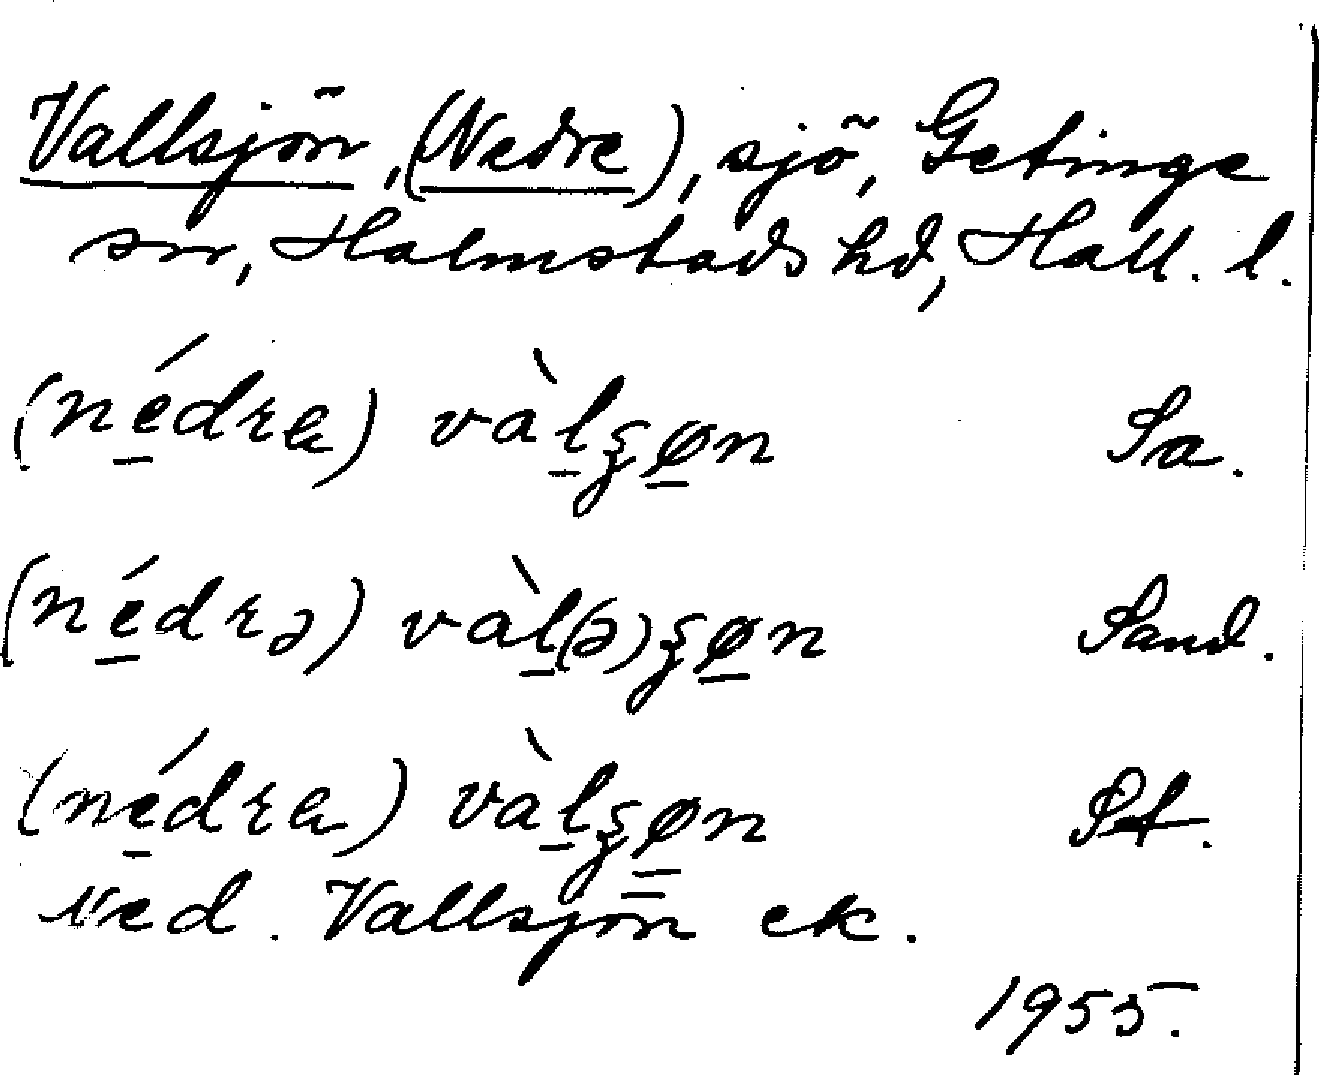 Vallsjön, (Nedre), sjö, Getinge
sn, Halmstads hd, Hall. l.
(nédra) vàlʒøn Sa.
(nédrə) vàl(ə)ʒøn Sand.
(nédra) vàlʒøn
Ned. Vallsjön ek.
1955.